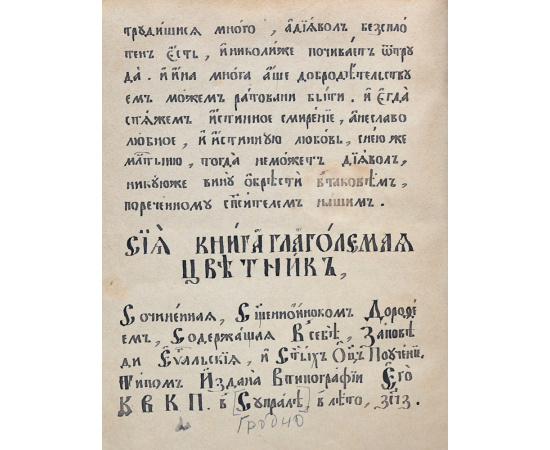 трудишися много , а҆дїѧволъ безспло
тенъ є҆сть , и҆николиже почиваетъ ѿтру
да . и҆ и҆на многа аще добродѣтельству
емъ можемъ ратовани быти . и҆ є҆гда
стѧжемъ и҆стинное смиренїе , а҆неславо
любное , и҆ и҆стинную любовь , снею же
млⷭ҇тыню , тогда неможетъ дїѧволъ ,
никуюже вину ѡ҆брѣсти втаковѣмъ ,
пореченному сп҃сителемъ нашимъ .
СІѦ КНИГА ГЛАГОЛЕМАЯ
ЦВѢТНИКЪ ,
Сочиненная , Сщ҃енноинокомъ Дороѳе
емъ , Содержащая Всебѣ , Заповѣ
ди Єѵ҃альскїя , и Ст҃ыхъ Оц҃ъ Поученїи
Типомъ Издана Втипографїи Єго
К В К П . в [Супраслѣ] влѣто ,
Гродно